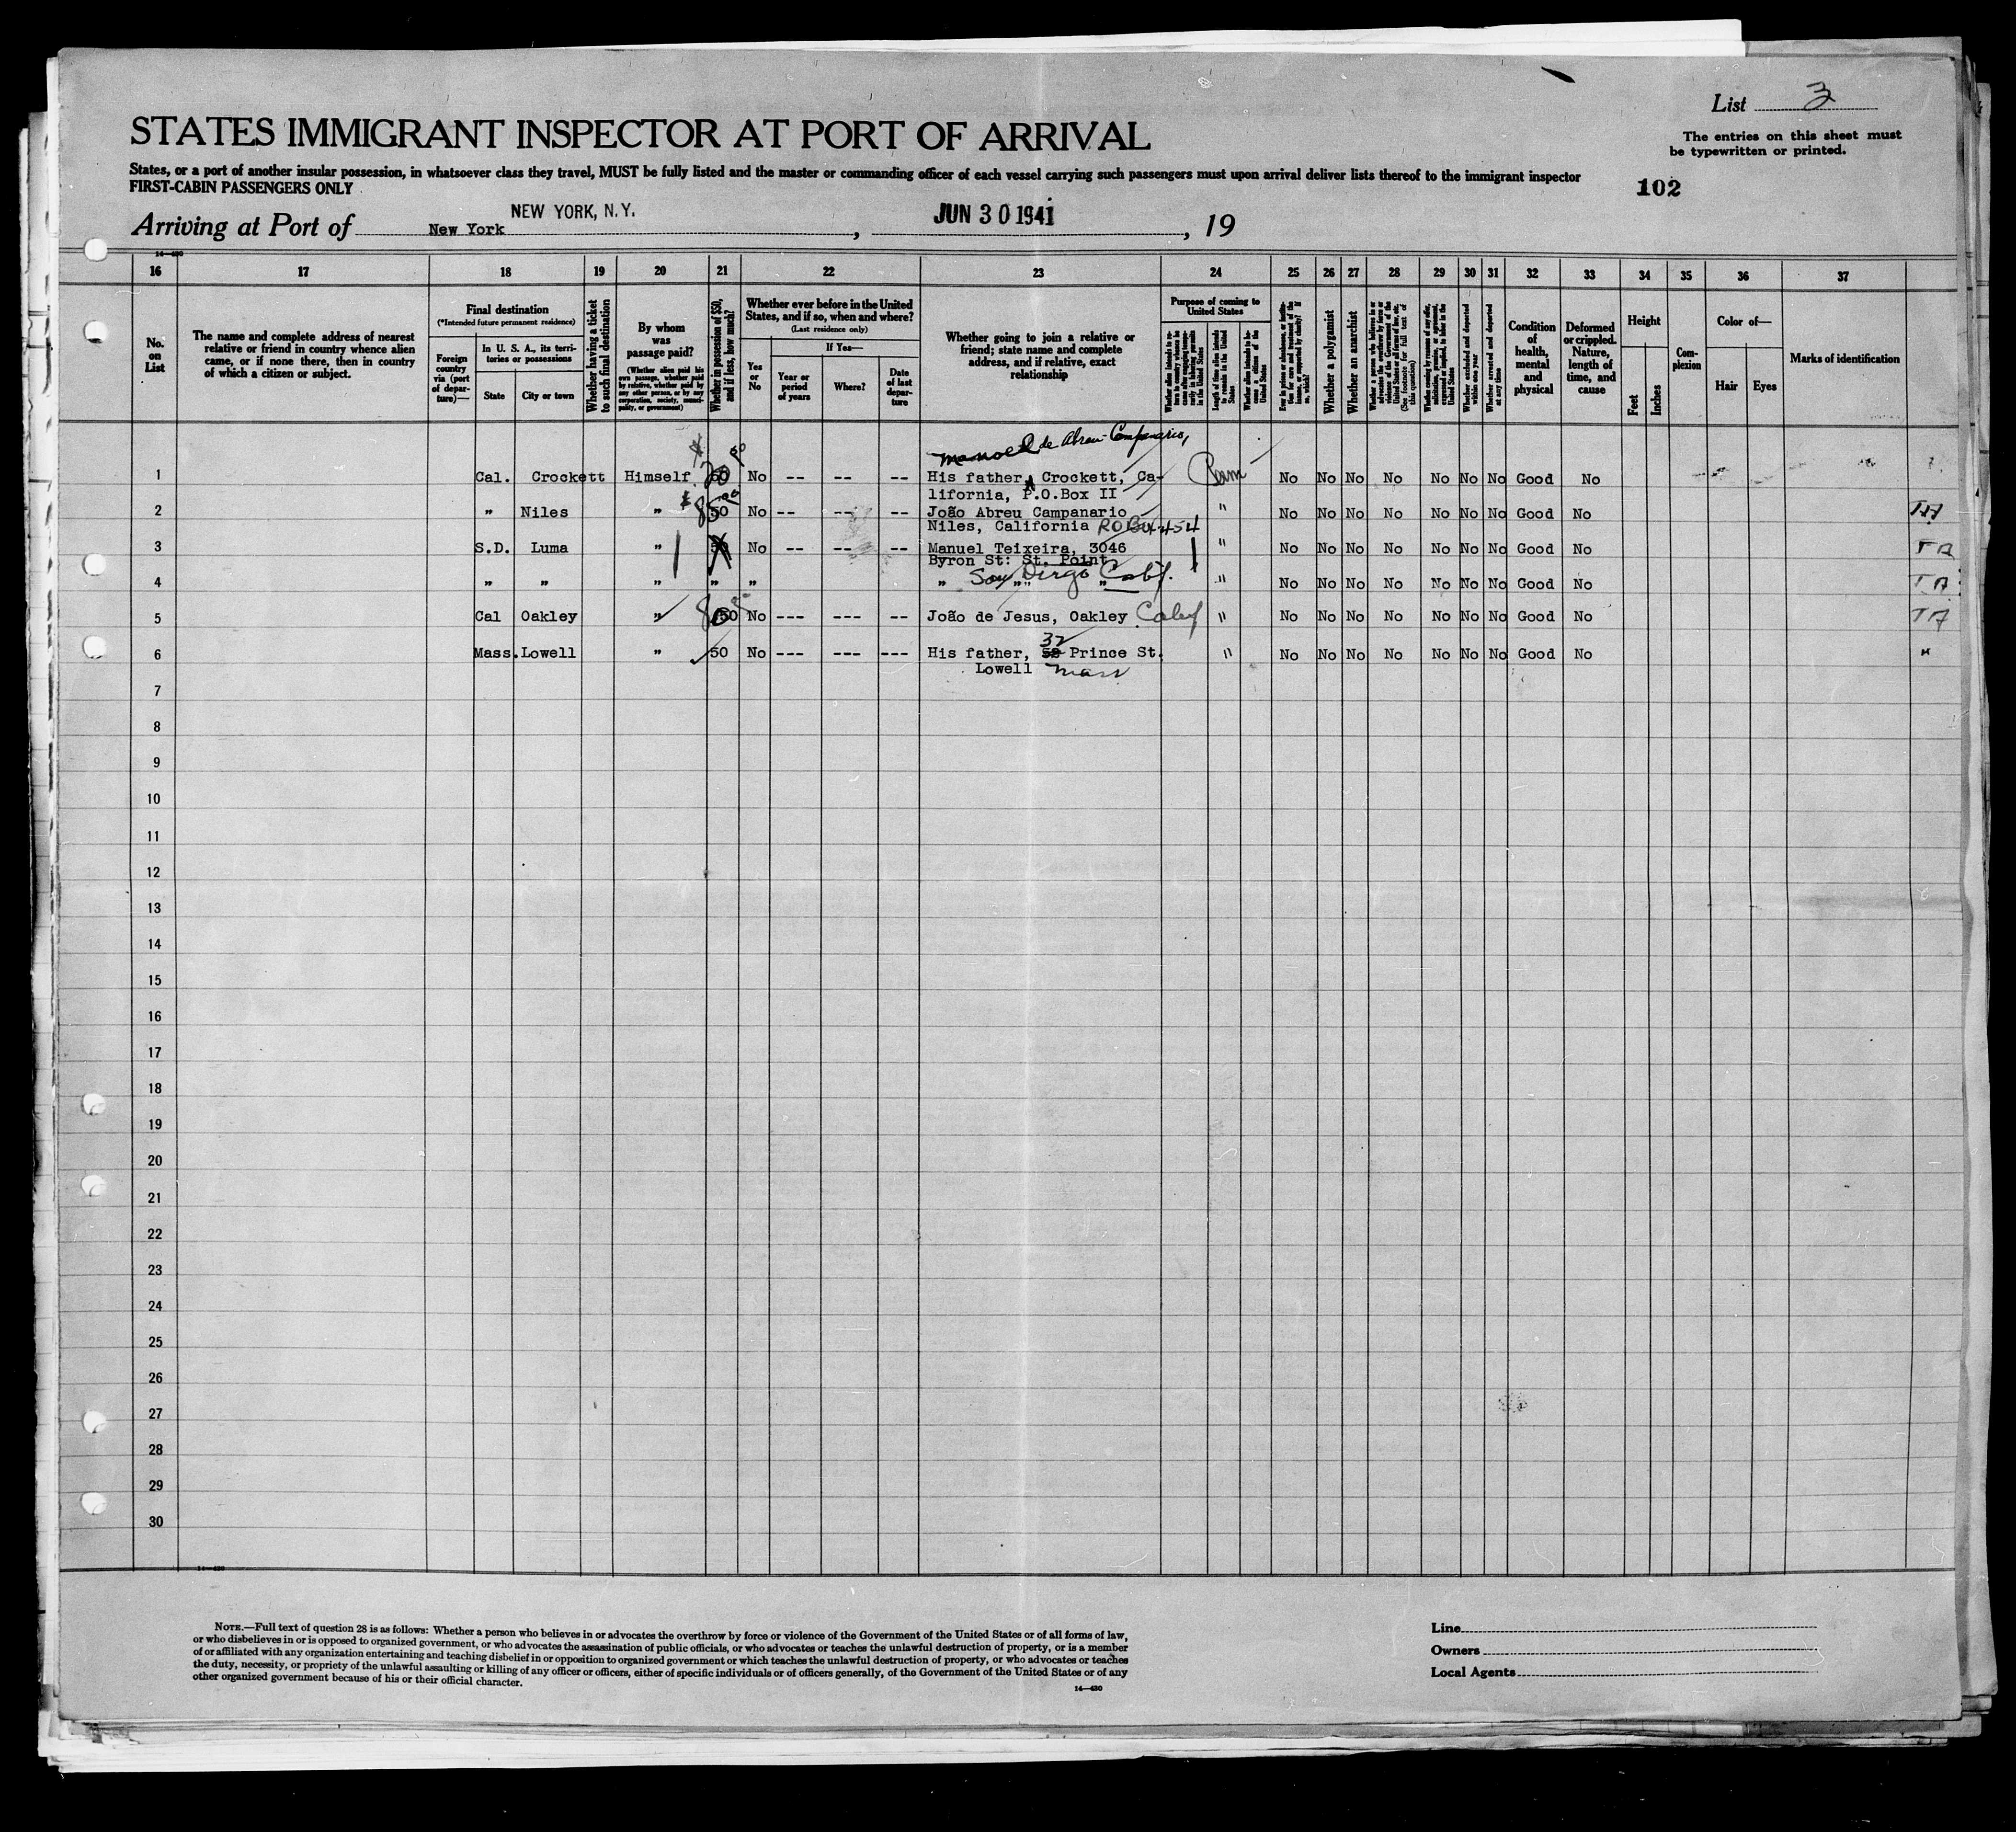 List 3
STATES IMMIGRANT INSPECTOR AT PORT OF ARRIVAL
The entries on this sheet must
be typewritten or printed.
States, or a port of another insular possession, in whatsoever class they travel, MUST be fully listed and the master or commanding officer of each vessel carrying such passengers must upon arrival deliver lists thereof to the immigrant inspector
FIRST-CABIN PASSENGERS ONLY
102
NEW YORK, N.Y.
Arriving at Port of New York, JUN 30 1941, 19
14—430
16 17 18 19 20 21 22 23 24 25 26 27 28 29 30 31 32 33 34 35 36 37
No.
on
List
The name and complete address of nearest
relative or friend in country whence alien
came, or if none there, then in country
of which a citizen or subject.
Final destination
(*Intended future permanent residence)
Foreign
country
via (port
of depar-
ture)—
In U. S. A., its terri-
tories or possessions
State
City or town
Whether having a ticket
to such final destination
By whom
was
passage paid?
(Whether alien paid his
own passage, whether paid
by relative, whether paid by
any other person, or by any
corporation, society, munici-
pality, or government)
Whether in possession of $50,
and if less, how much?
Whether ever before in the United
States, and if so, when and where?
(Last residence only)
Yes
or
No
If Yes—
Year or
period
of years
Where?
Date
of last
depar-
ture
Whether going to join a relative or
friend; state name and complete
address, and if relative, exact
relationship
Purpose of coming to
United States
Whether alien intends to re-
turn to country whence he
came after engaging tempo-
rarily in laboring pursuits
in the United States
Length of time alien intends
to remain in the United
States
Whether alien intends to be-
come a citizen of the
United States
Ever in prison or almshouse, or institu-
tion for care and treatment of the
insane, or supported by charity? If
so, which?
Whether a polygamist
Whether an anarchist
Whether a person who believes in or
advocates the overthrow by force or
violence of the Government of the
United States or all forms of law, etc.
(See footnote for full text of
this question)
Whether coming by reason of any offer,
solicitation, promise, or agreement,
expressed or implied, to labor in the
United States
Whether excluded and deported
within one year
Whether arrested and deported
at any time
Condition
of
health,
mental
and
physical
Deformed
or crippled.
Nature,
length of
time, and
cause
Height
Feet
Inches
Com-
plexion
Color of—
Hair
Eyes
Marks of identification
Manoel de Abreu Campanario,
1 Cal. Crockett Himself $ 50 No -- -- -- His father, Crockett, Ca- Perm No No No No No No No Good No
lifornia, P.O.Box II
2 " Niles " $85 00 50 No -- -- -- João Abreu Campanario " No No No No No No No Good No TA
Niles, California
3 S.D. Luma " 50 No -- -- -- Manuel Teixeira, 3046 " No No No No No No No Good No TA
Byron St: St. Point
4 " " " " " " San Diego " Calif. " No No No No No No No Good No TA
5 Cal Oakley " 80 50 No --- --- -- João de Jesus, Oakley Calif " No No No No No No No Good No TA
32
6 Mass. Lowell " 50 No --- --- --- His father, 58 Prince St. " No No No No No No No Good No "
Lowell Mass
7
8
9
10
11
12
13
14
15
16
17
18
19
20
21
22
23
24
25
26
27
28
29
30
14—430
NOTE.—Full text of question 28 is as follows: Whether a person who believes in or advocates the overthrow by force or violence of the Government of the United States or of all forms of law,
or who disbelieves in or is opposed to organized government, or who advocates the assassination of public officials, or who advocates or teaches the unlawful destruction of property, or is a member
of or affiliated with any organization entertaining and teaching disbelief in or opposition to organized government or which teaches the unlawful destruction of property, or who advocates or teaches
the duty, necessity, or propriety of the unlawful assaulting or killing of any officer or officers, either of specific individuals or of officers generally, of the Government of the United States or of any
other organized government because of his or their official character.
14—430
Line
Owners
Local Agents